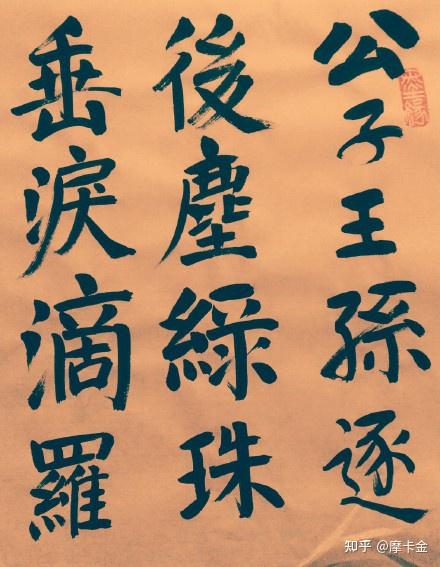 公子王孫逐
後塵綠珠
垂淚滴羅
知乎 @摩卡金